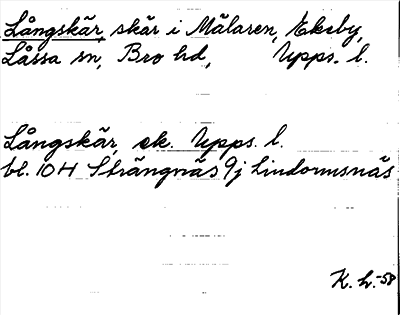 Långskär, skär i Mälaren, Ekeby,
Låssa sn, Bro hd, Upps. l.
Långskär, ek. Upps. l.
bl. 104 Strängnäs 9j Lindormsnäs
K. h. -58